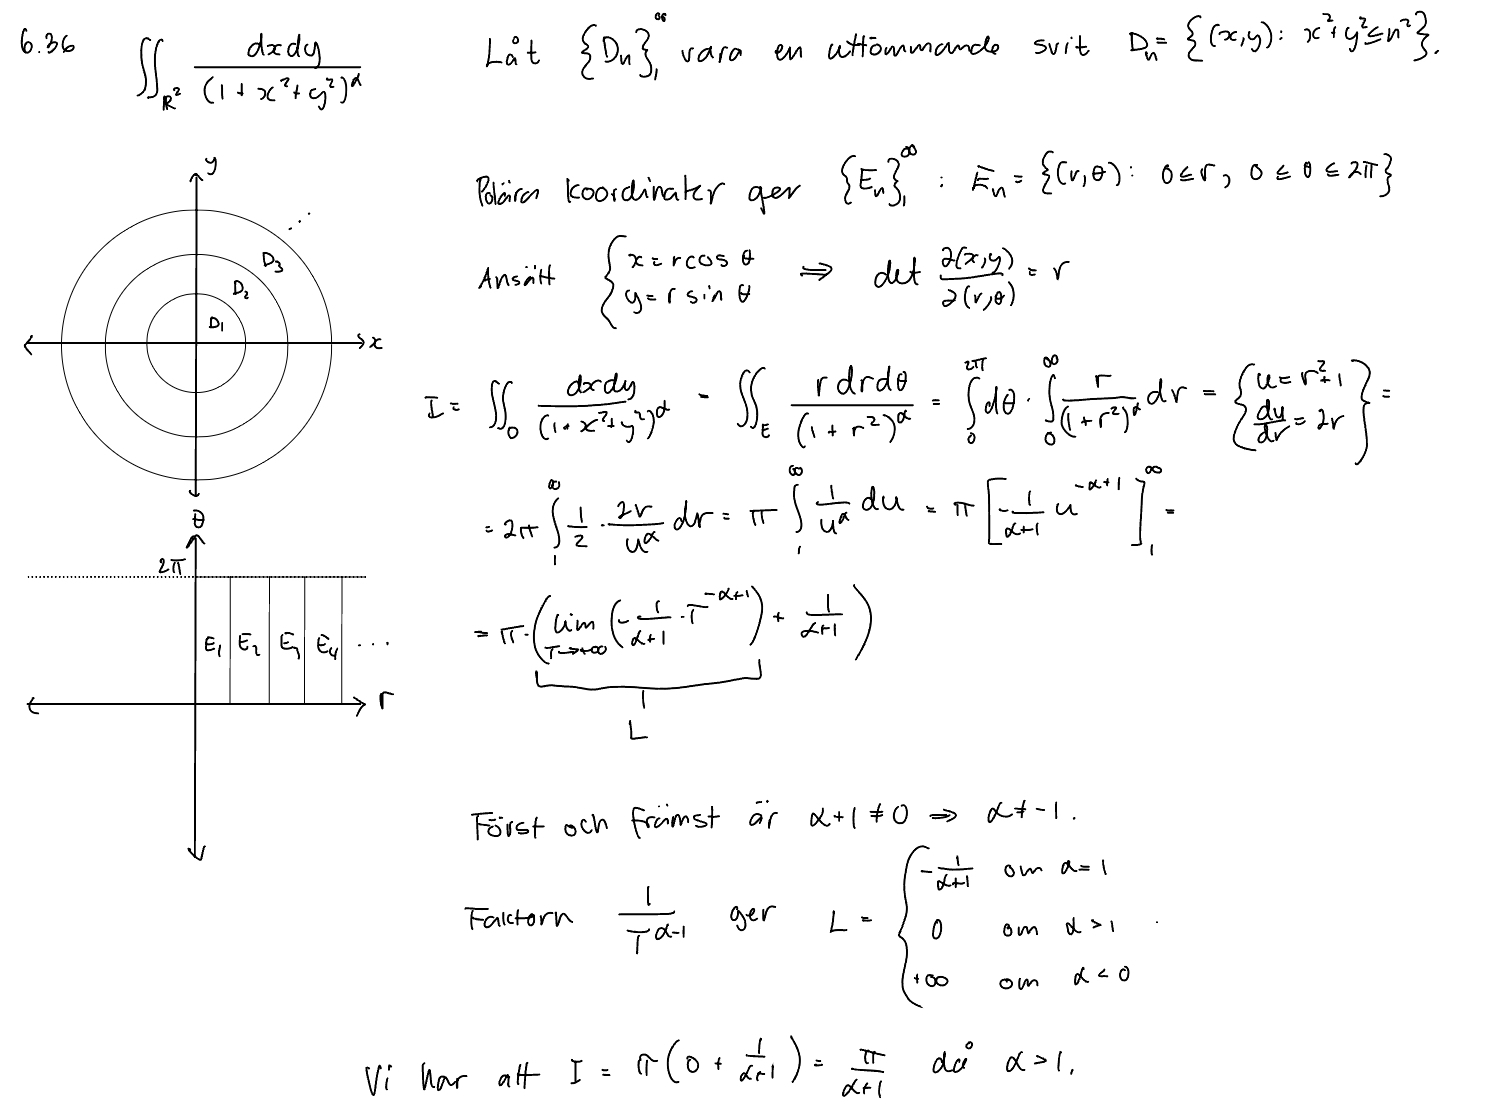 6.36 ∬_{R²} dxdy/(1+x²+y²)^α
Låt {Dₙ}₁^∞ vara en uttömmande svit Dₙ = {(x,y): x²+y²≤n²}.
y
D₃
D₂
D₁
x
Polära koordinater ger {Eₙ}₁^∞ : Eₙ = {(r,θ): 0≤r, 0≤θ≤2π}
Ansätt { x = r cos θ
y = r sin θ ⇒ det ∂(x,y)/∂(r,θ) = r
I = ∬_D dxdy/(1+x²+y²)^α = ∬_E r dr dθ/(1+r²)^α = ∫₀^{2π} dθ · ∫₀^∞ r/(1+r²)^α dr = { u = r²+1
du/dr = 2r } =
= 2π ∫₁^∞ 1/2 · 2r/u^α dr = π ∫₁^∞ 1/u^α du = π [-1/(α+1) u^{-α+1}]₁^∞ =
= π·( lim_{T→+∞} (-1/(α+1) · T^{-α+1}) + 1/(α+1) )
L
θ
2π
E₁ E₂ E₃ E₄ ...
r
Först och främst är α+1 ≠ 0 ⇒ α ≠ -1.
Faktorn 1/T^{α-1} ger L = { -1/(α+1) om α = 1
0 om α > 1
+∞ om α < 0 .
Vi har att I = π(0 + 1/(α+1)) = π/(α+1) då α > 1.